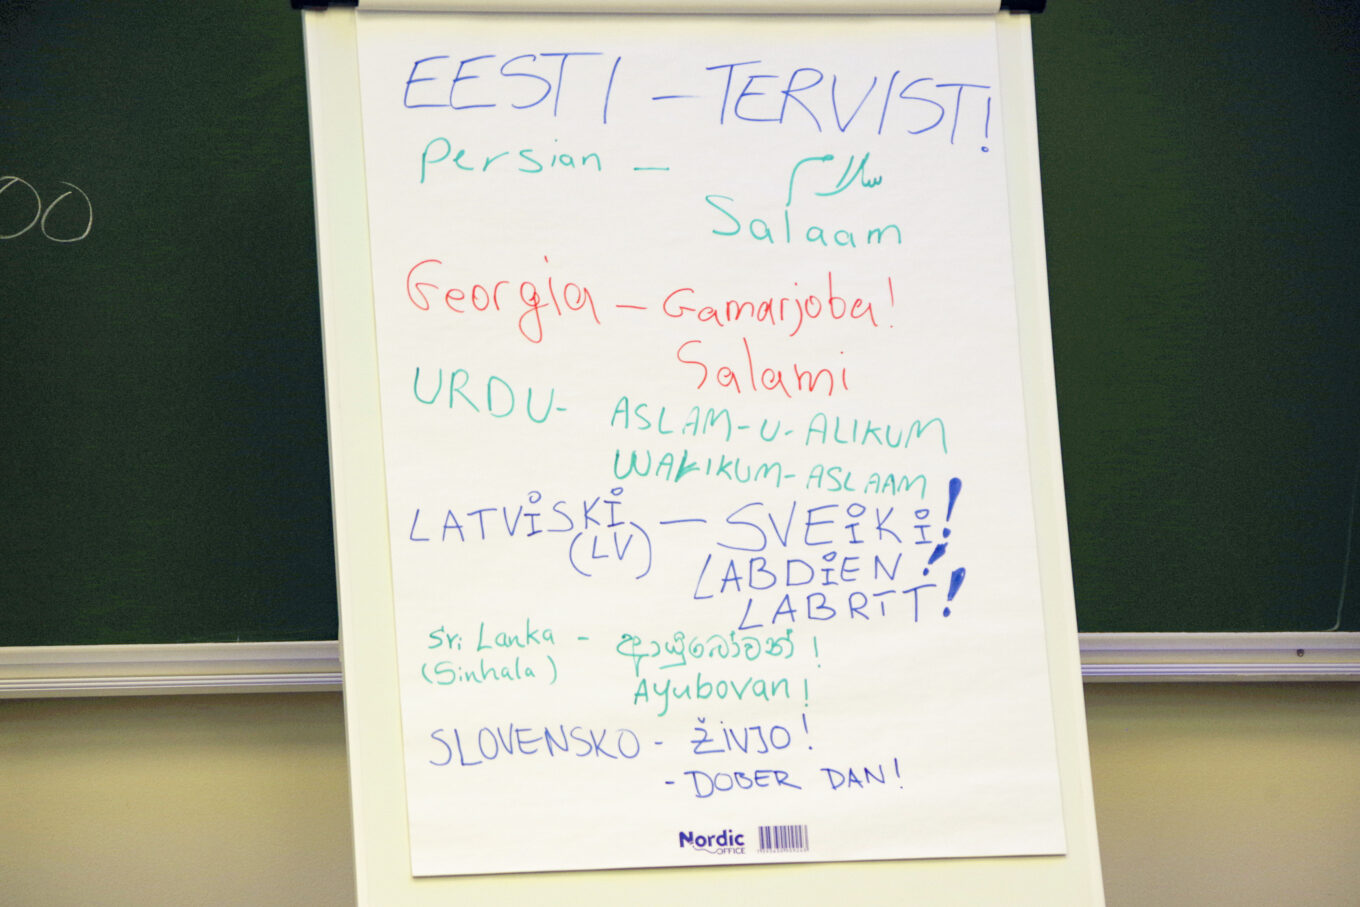 00
EESTI – TERVIST!
Persian – سلام
Salaam
Georgia – Gamarjoba!
Salami
URDU- ASLAM-U-ALIKUM
WALIKUM-ASLAAM
LATVISKI (LV) – SVEIKI!
LABDIEN!
LABRĪT!
Sri Lanka - ආයුබෝවන් !
(Sinhala) Ayubovan!
SLOVENSKO - ŽIVJO!
- DOBER DAN!
Nordic
OFFICE